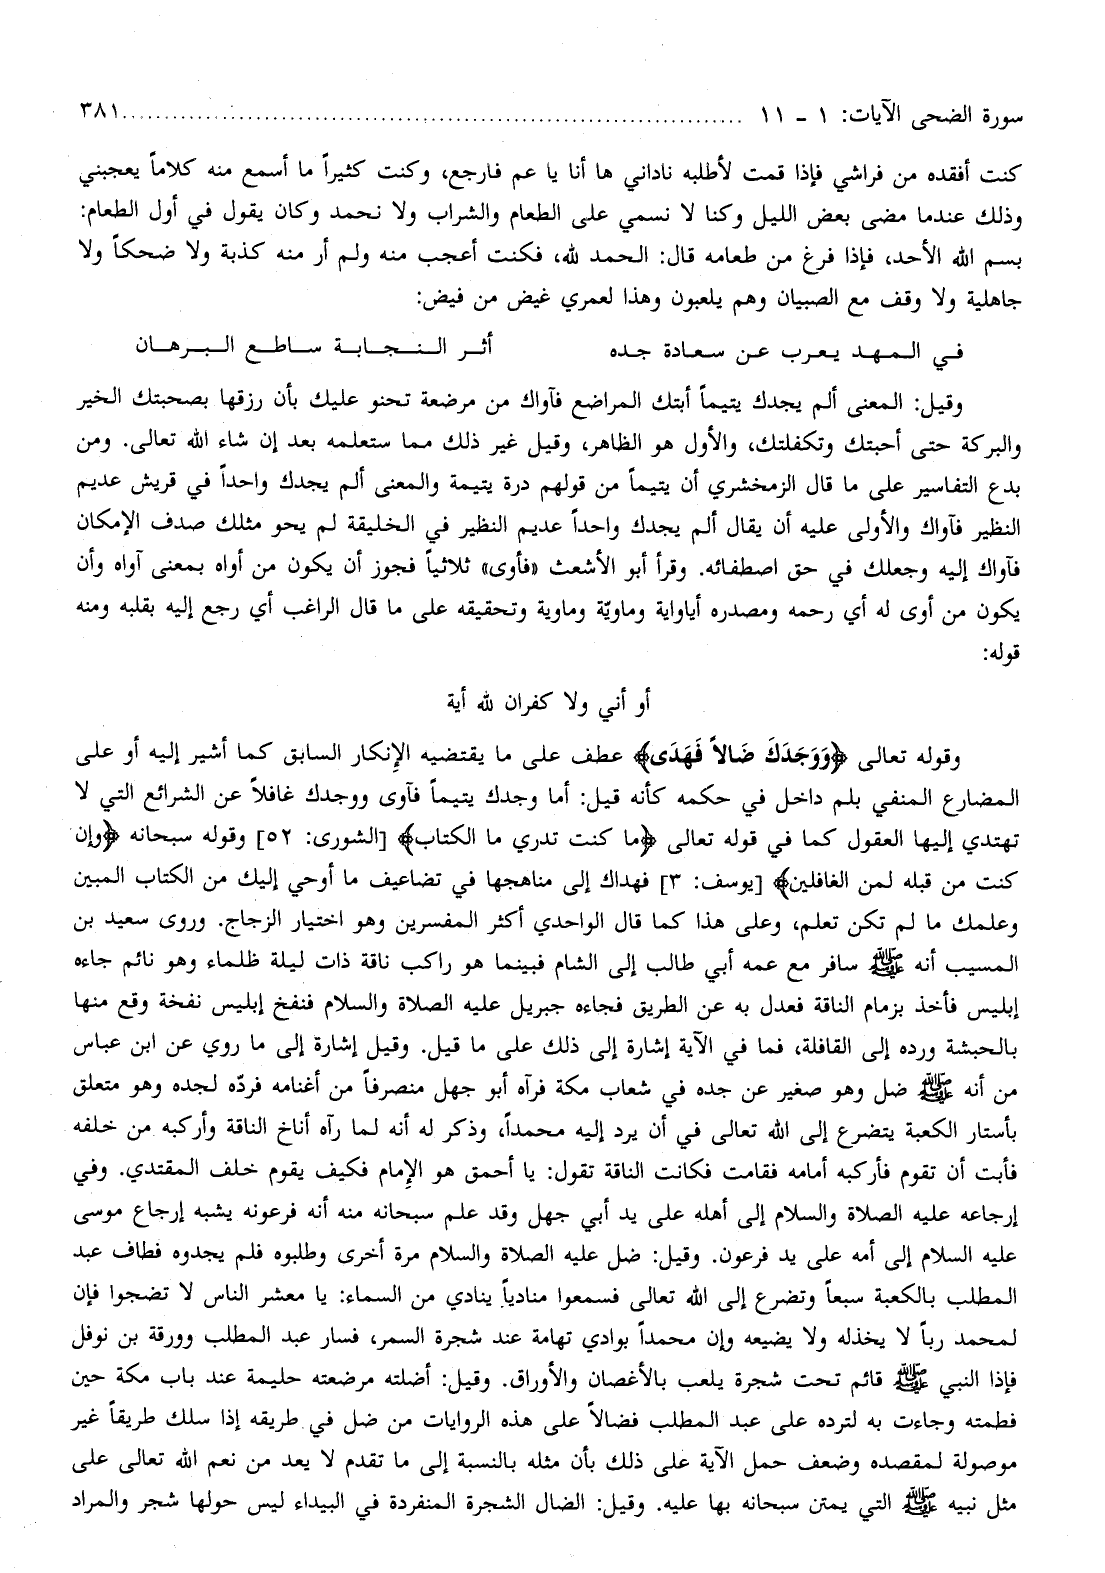 سورة الضحى الآيات: ١ - ١١ ........................................................................ ٣٨١
كنت أفقده من فراشي فإذا قمت لأطلبه ناداني ها أنا يا عم فارجع، وكنت كثيراً ما أسمع منه كلاماً يعجبني
وذلك عندما مضى بعض الليل وكنا لا نسمي على الطعام والشراب ولا نحمد وكان يقول في أول الطعام:
بسم الله الأحد، فإذا فرغ من طعامه قال: الحمد لله، فكنت أعجب منه ولم أر منه كذبة ولا ضحكاً ولا
جاهلية ولا وقف مع الصبيان وهم يلعبون وهذا لعمري غيض من فيض:
في المهد يعرب عن سعادة جده أثر النجابة ساطع البرهان
وقيل: المعنى ألم يجدك يتيماً أبتك المراضع فآواك من مرضعة تحنو عليك بأن رزقها بصحبتك الخير
والبركة حتى أحبتك وتكفلتك، والأول هو الظاهر، وقيل غير ذلك مما ستعلمه بعد إن شاء الله تعالى. ومن
بدع التفاسير على ما قال الزمخشري أن يتيماً من قولهم درة يتيمة والمعنى ألم يجدك واحداً في قريش عديم
النظير فآواك والأولى عليه أن يقال ألم يجدك واحداً عديم النظير في الخليقة لم يحو مثلك صدف الإمكان
فآواك إليه وجعلك في حق اصطفائه. وقرأ أبو الأشعث «فأوى» ثلاثياً فجوز أن يكون من أواه بمعنى آواه وأن
يكون من أوى له أي رحمه ومصدره أياواية وماويّة وماوية وتحقيقه على ما قال الراغب أي رجع إليه بقلبه ومنه
قوله:
أو أني ولا كفران لله أية
وقوله تعالى ﴿وَوَجَدَكَ ضَالاً فَهَدَى﴾ عطف على ما يقتضيه الإنكار السابق كما أشير إليه أو على
المضارع المنفي بلم داخل في حكمه كأنه قيل: أما وجدك يتيماً فآوى ووجدك غافلاً عن الشرائع التي لا
تهتدي إليها العقول كما في قوله تعالى ﴿ما كنت تدري ما الكتاب﴾ [الشورى: ٥٢] وقوله سبحانه ﴿وإن
كنت من قبله لمن الغافلين﴾ [يوسف: ٣] فهداك إلى مناهجها في تضاعيف ما أوحي إليك من الكتاب المبين
وعلمك ما لم تكن تعلم، وعلى هذا كما قال الواحدي أكثر المفسرين وهو اختيار الزجاج. وروى سعيد بن
المسيب أنه ﷺ سافر مع عمه أبي طالب إلى الشام فبينما هو راكب ناقة ذات ليلة ظلماء وهو نائم جاءه
إبليس فأخذ بزمام الناقة فعدل به عن الطريق فجاءه جبريل عليه الصلاة والسلام فنفخ إبليس نفخة وقع منها
بالحبشة ورده إلى القافلة، فما في الآية إشارة إلى ذلك على ما قيل. وقيل إشارة إلى ما روي عن ابن عباس
من أنه ﷺ ضل وهو صغير عن جده في شعاب مكة فرآه أبو جهل منصرفاً من أغنامه فردّه لجده وهو متعلق
بأستار الكعبة يتضرع إلى الله تعالى في أن يرد إليه محمداً، وذكر له أنه لما رآه أناخ الناقة وأركبه من خلفه
فأبت أن تقوم فأركبه أمامه فقامت فكانت الناقة تقول: يا أحمق هو الإمام فكيف يقوم خلف المقتدي. وفي
إرجاعه عليه الصلاة والسلام إلى أهله على يد أبي جهل وقد علم سبحانه منه أنه فرعونه يشبه إرجاع موسى
عليه السلام إلى أمه على يد فرعون. وقيل: ضل عليه الصلاة والسلام مرة أخرى وطلبوه فلم يجدوه فطاف عبد
المطلب بالكعبة سبعاً وتضرع إلى الله تعالى فسمعوا منادياً ينادي من السماء: يا معشر الناس لا تضجوا فإن
لمحمد رباً لا يخذله ولا يضيعه وإن محمداً بوادي تهامة عند شجرة السمر، فسار عبد المطلب وورقة بن نوفل
فإذا النبي ﷺ قائم تحت شجرة يلعب بالأغصان والأوراق. وقيل: أضلته مرضعته حليمة عند باب مكة حين
فطمته وجاءت به لترده على عبد المطلب فضالاً على هذه الروايات من ضل في طريقه إذا سلك طريقاً غير
موصولة لمقصده وضعف حمل الآية على ذلك بأن مثله بالنسبة إلى ما تقدم لا يعد من نعم الله تعالى على
مثل نبيه ﷺ التي يمتن سبحانه بها عليه. وقيل: الضال الشجرة المنفردة في البيداء ليس حولها شجر والمراد